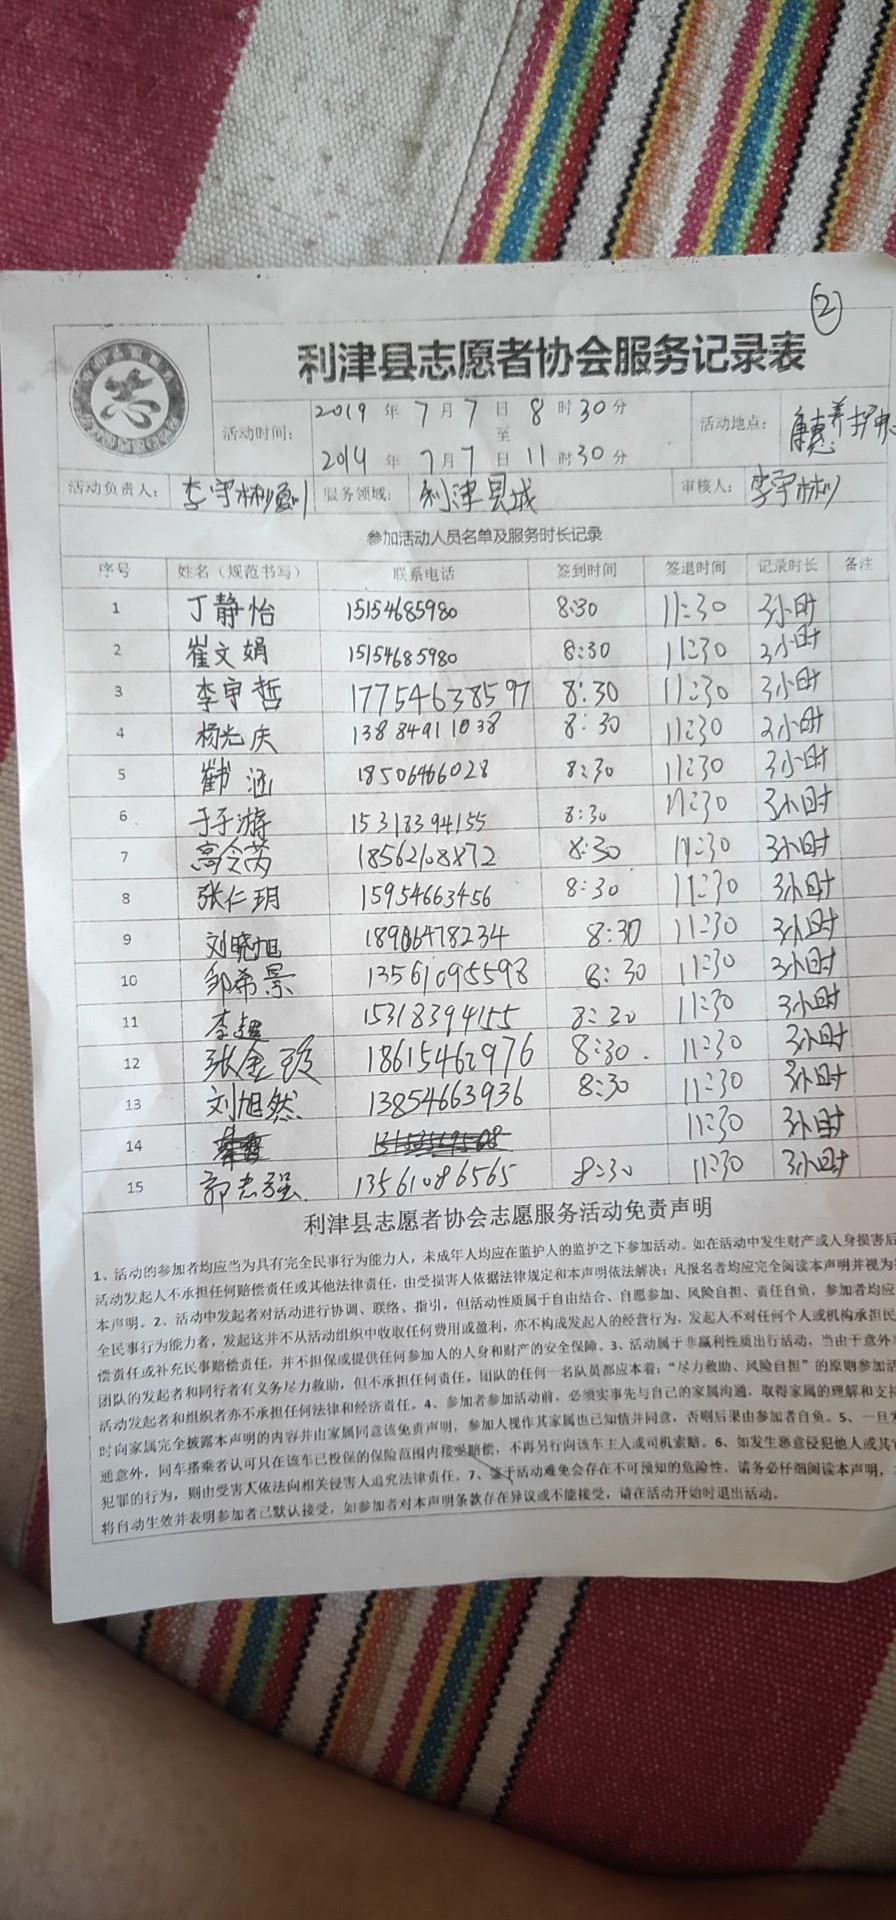 ②
利津县志愿者协会服务记录表
志
活动时间: 2019 年 7 月 7 日 8 时 30 分
至
2014 年 7 月 7 日 11 时 30 分
活动地点: 康惠养护中心
活动负责人: 服务领域: 利津县城 审核人:
参加活动人员名单及服务时长记录
序号 姓名（规范书写） 联系电话 签到时间 签退时间 记录时长 备注
1 丁静怡 15154685980 8:30 11:30 3小时
2 崔文娟 15154685980 8:30 11:30 3小时
3 李守哲 17754638597 8:30 11:30 3小时
4 杨光庆 13884911038 8:30 11:30 3小时
5 涵 18506466028 8:30 11:30 3小时
6 于子游 15318394155 8:30 11:30 3小时
7 高令芮 18562108872 8:30 11:30 3小时
8 张仁玥 15954663456 8:30 11:30 3小时
9 刘晓旭 18906478234 8:30 11:30 3小时
10 邹希景 13561095598 8:30 11:30 3小时
11 李超 15318394155 8:30 11:30 3小时
12 张金玲 18615462976 8:30. 11:30 3小时
13 刘旭然 13854663936 8:30 11:30 3小时
14 11:30 3小时
15 郭志强 13561086565 8:30 11:30 3小时
利津县志愿者协会志愿服务活动免责声明
1、活动的参加者均应当为具有完全民事行为能力人，未成年人均应在监护人的监护之下参加活动。如在活动中发生财产或人身损害后
活动发起人不承担任何赔偿责任或其他法律责任，由受损害人依据法律规定和本声明依法解决；凡报名者均应完全阅读本声明并视为
本声明。2、活动中发起者对活动进行协调、联络、指引，但活动性质属于自由结合、自愿参加、风险自担、责任自负，参加者均应
全民事行为能力者，发起这并不从活动组织中收取任何费用或盈利，亦不构成发起人的经营行为，发起人不对任何个人或机构承担民
偿责任或补充民事赔偿责任，并不担保或提供任何参加人的人身和财产的安全保障。3、活动属于非赢利性质出行活动，当由于意外
团队的发起者和同行者有义务尽力救助，但不承担任何责任。团队的任何一名队员都应本着：“尽力救助、风险自担”的原则参加活
活动发起者和组织者亦不承担任何法律和经济责任。4、参加者参加活动前，必须实事先与自己的家属沟通，取得家属的理解和支持
时向家属完全披露本声明的内容并由家属同意该免责声明，参加人视作其家属也已知情并同意，否则后果由参加者自负。5、一旦发
通意外，同车搭乘者认可只在该车已投保的保险范围内接受赔偿，不再另行向该车主人或司机索赔。6、如发生恶意侵犯他人或其它
犯罪的行为，则由受害人依法向相关侵害人追究法律责任。7、鉴于活动难免会存在不可预知的危险性，请务必仔细阅读本声明，
将自动生效并表明参加者已默认接受，如参加者对本声明条款存在异议或不能接受，请在活动开始时退出活动。